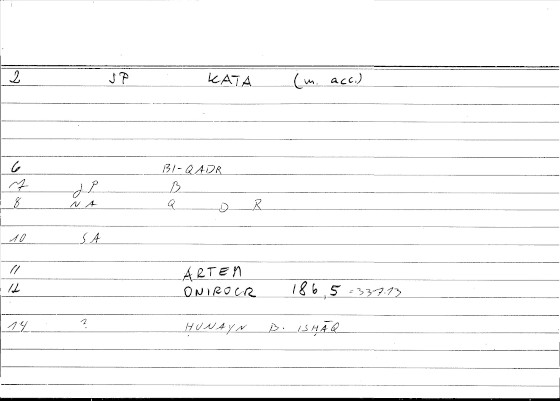 2 JP KATA (m. acc.)
6 BI-QADR
7 JP B
8 NA Q D R
10 SA
11 ARTEM
12 ONIROCR 186,5 = 337.13
14 ? ḤUNAYN B. ISḤĀQ